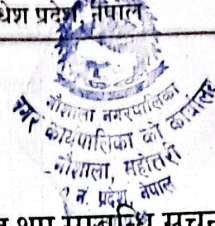 धेश प्रदेश, नेपाल
गौशाला नगरपालिका
नगर कार्यपालिका को कार्यालय
गौशाला, महोत्तरी
२ नं. प्रदेश, नेपाल
थप सम्बन्धि सूचना